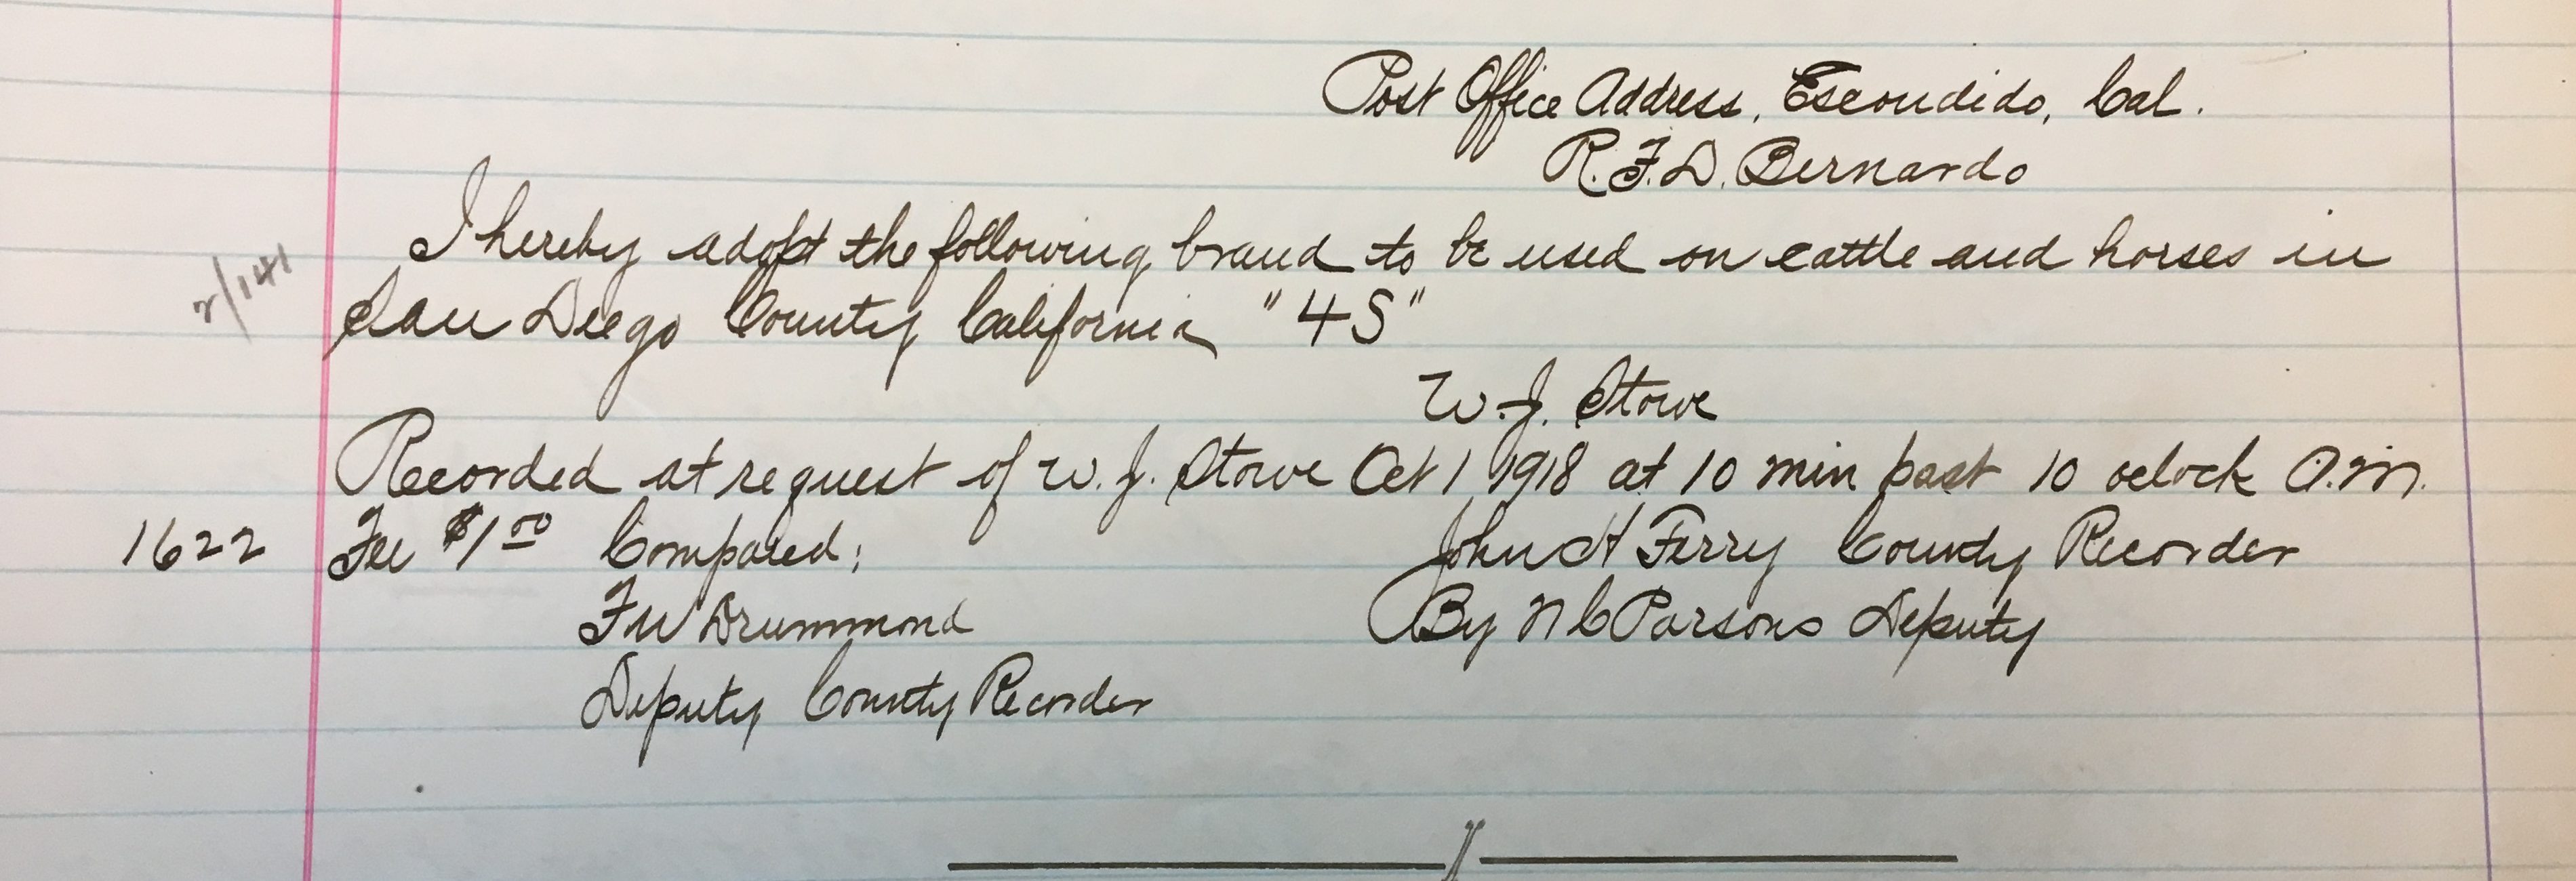 Post Office Address, Escondido, Cal.
R.F.D. Bernardo
I hereby adopt the following brand to be used on cattle and horses in
2/141
San Diego County California "4S"
W.J. Stowe
Recorded at request of W.J. Stowe Oct 1 1918 at 10 min past 10 oclock A.M.
1622 Fee $1.00 Compared; John H Ferry County Recorder
FW Drummond By N C Parsons Deputy
Deputy County Recorder